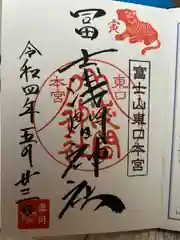 寅
富士山東口本宮
東口
冨士浅間神社
本宮
令和四年五月廿三